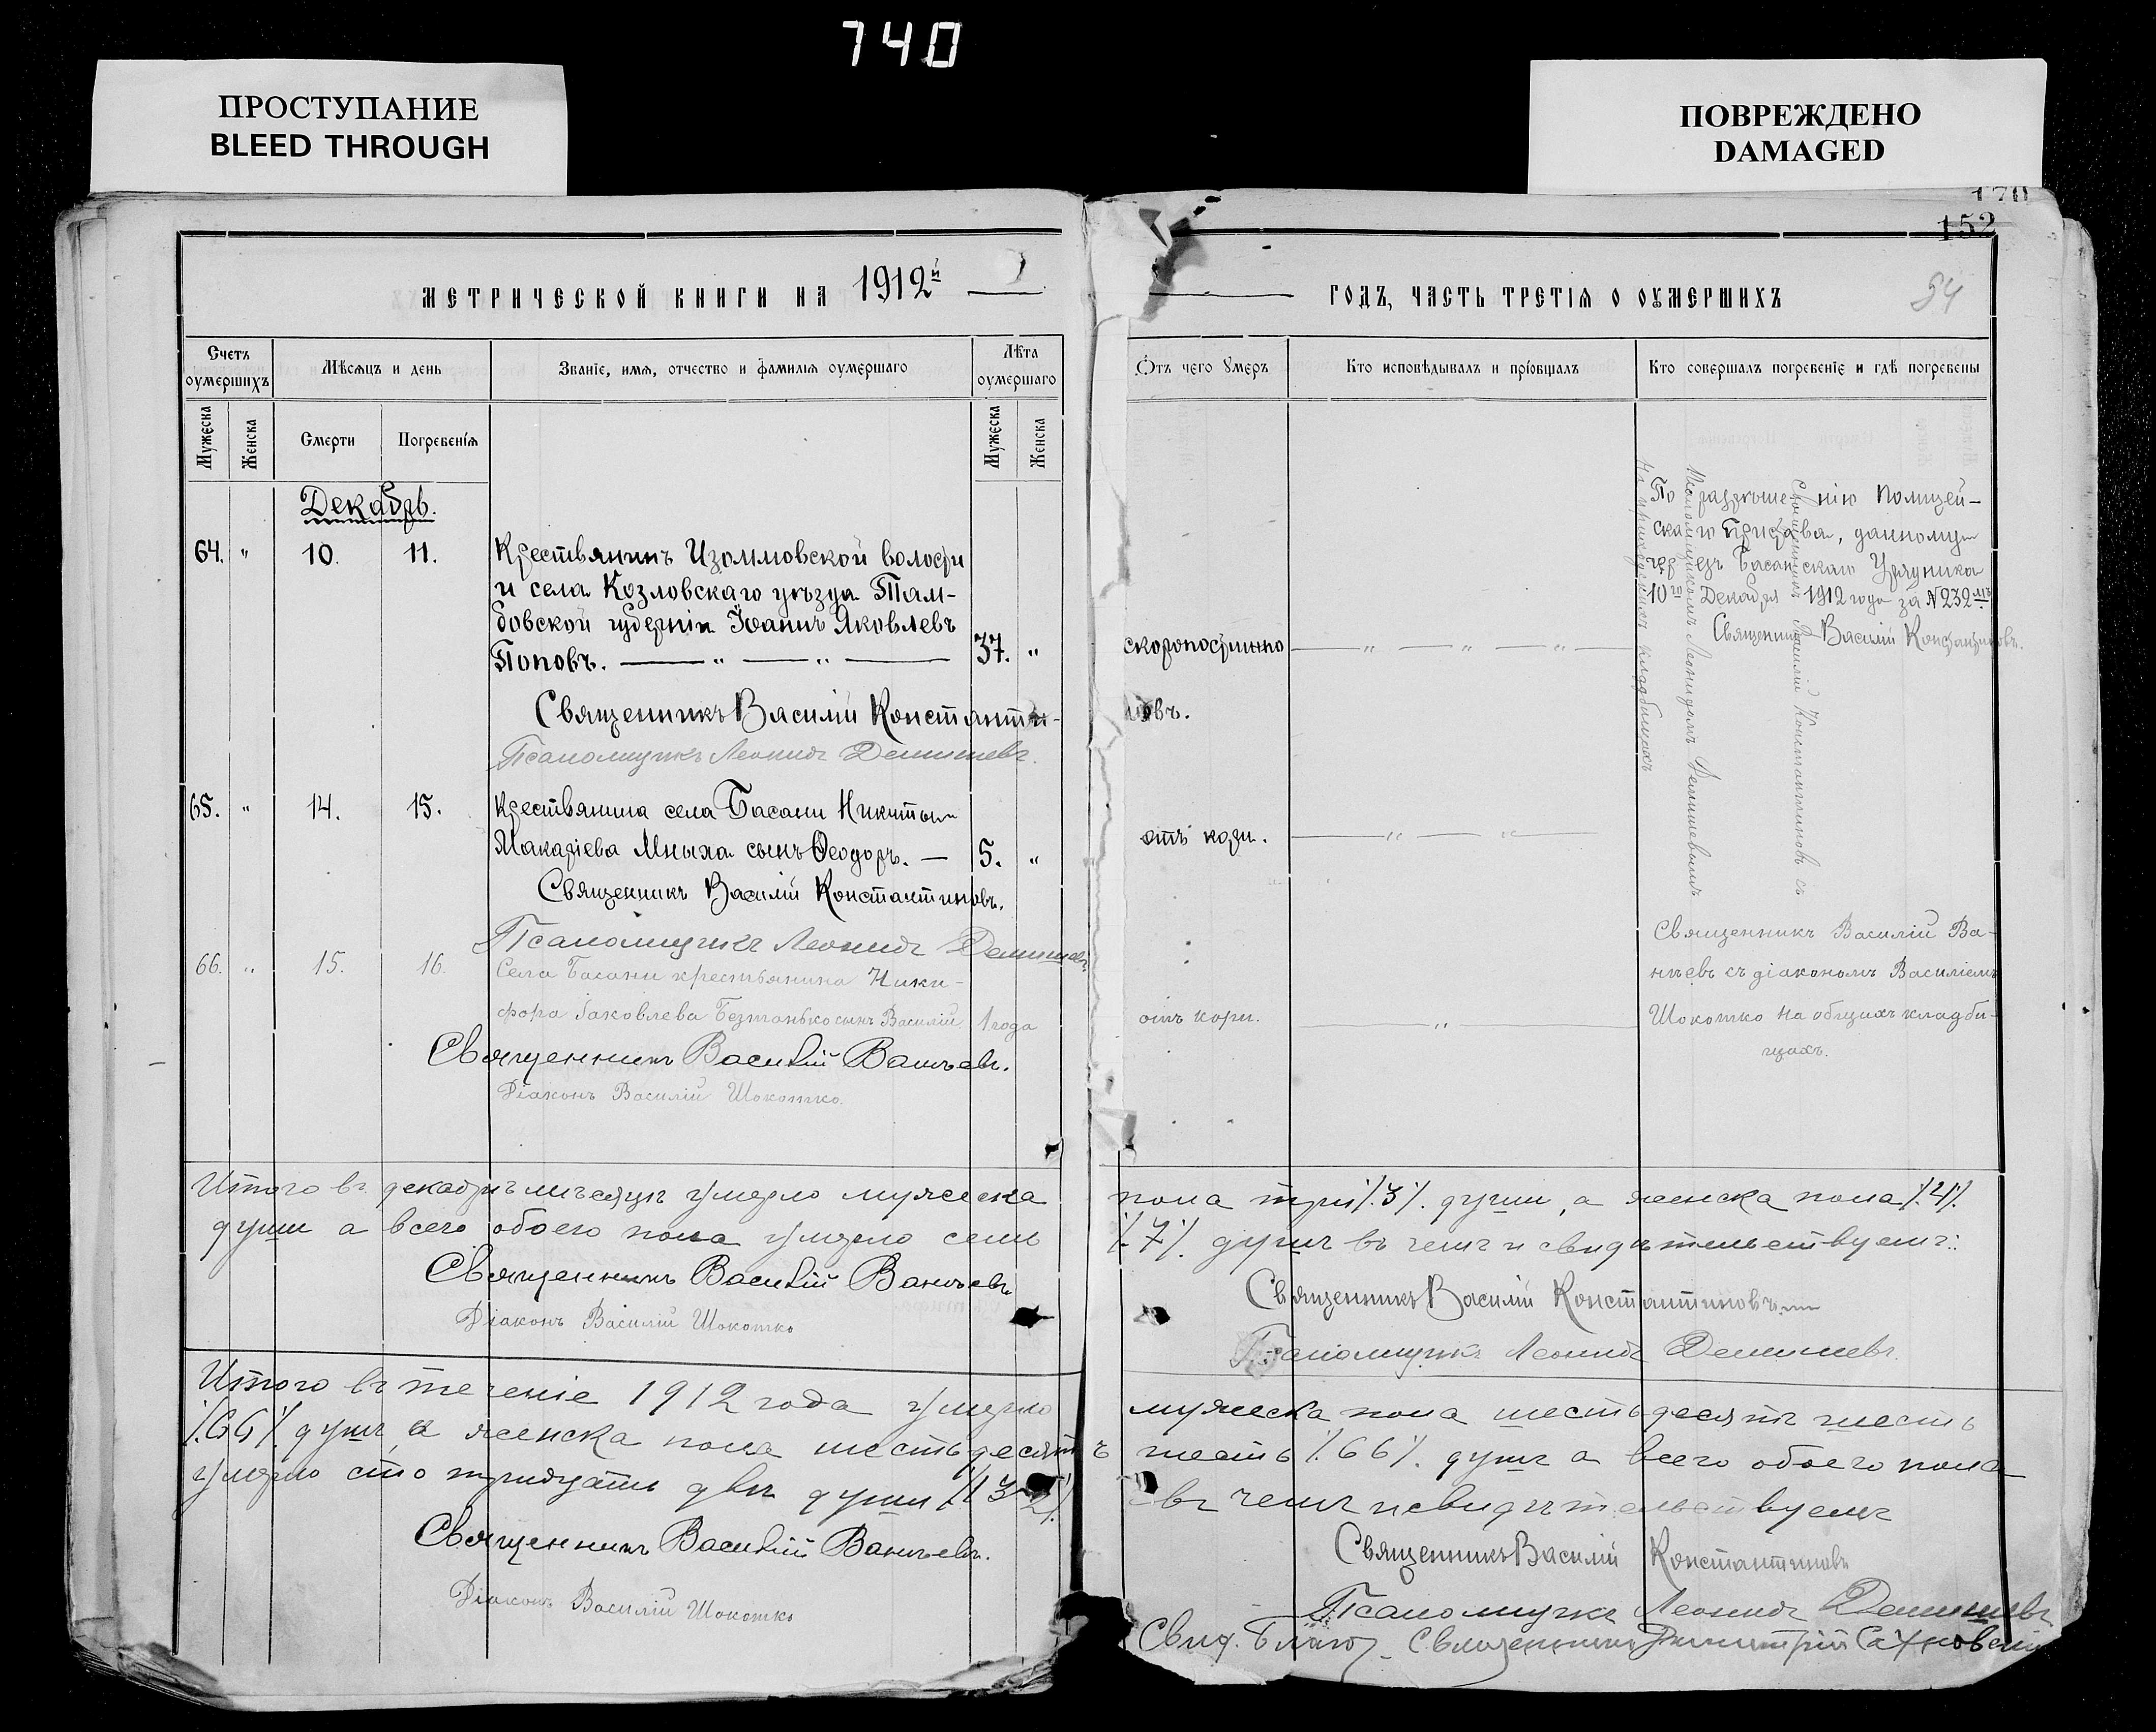 740
ПРОСТУПАНИЕ
BLEED THROUGH
ПОВРЕЖДЕНО
DAMAGED
170
152
МЕТРИЧЕСКОЙ КНИГИ НА 1912й
Счетъ оумершихъ
Мѣсяцъ и день
Званіе, имя, отчество и фамилія оумершаго
Лѣта оумершаго
Мужеска
Женска
Смерти
Погребенія
Мужеска
Женска
Декабрь.
64. " 10. 11. Крестьянинъ Изоммовской волости
и села Козловскаго уѣзда Там-
бовской губерніи Іоаннъ Яковлевъ
Поповъ. — " — " — 37. "
Священникъ Василій Константи-
Псаломщикъ Леонидъ Демишевъ.
65. " 14. 15. Крестьянина села Басани Никиты
Макаріева Мныха сынъ Ѳеодоръ. — 5. "
Священникъ Василій Константиновъ.
Псаломщикъ Леонидъ Демишевъ.
66. " 15. 16. Села Басани крестьянина Ники-
фора Іаковлева Безманько сынъ Василій 1 года
Священникъ Василій Ваньевъ.
Діаконъ Василій Шокотко.
Итого въ декабрѣ мѣсяцѣ умерло мужеска
души а всего обоего пола умерло семь
Священникъ Василій Ваньевъ
Діаконъ Василій Шокотко
Итого въ теченіе 1912 года умерло
/.66/. душъ, а женска пола шестьдесятъ
умерло сто тридцать двѣ души /.132/.
Священникъ Василій Ваньевъ.
Діаконъ Василій Шокотко
ГОДЪ, ЧАСТЬ ТРЕТІЯ О ОУМЕРШИХЪ
84
Отъ чего умеръ
Кто исповѣдывалъ и пріобщалъ
Кто совершалъ погребеніе и гдѣ погребены
По разрѣшенію полицей-
скаго Пристава, данному
чрезъ Басанскаго Урядника
10го Декабря 1912 года за №232мъ
Священникъ Василій Константиновъ.
скоропостижно — " — " — " —
новъ.
Священникъ Василій Константиновъ съ
Псаломщикомъ Леонидомъ Демишевымъ
на приходскихъ кладбищахъ
отъ кори. — " — " —
Священникъ Василій Ва-
ньевъ съ діакономъ Василіемъ
отъ кори. — " — Шокотко на общихъ кладби-
щахъ.
пола три /.3/. души, а женска пола /.4/.
/.7/. душъ въ чемъ и свидѣтельствуемъ:
Священникъ Василій Константиновъ
Псаломщикъ Леонидъ Демишевъ.
мужеска пола шестьдесятъ шесть
шесть /.66/. душъ а всего обоего пола
въ чемъ и свидѣтельствуемъ
Священникъ Василій Константиновъ
Псаломщикъ Леонидъ Демишевъ
Свид. Благоч. Священникъ Димитрій Сахновскій